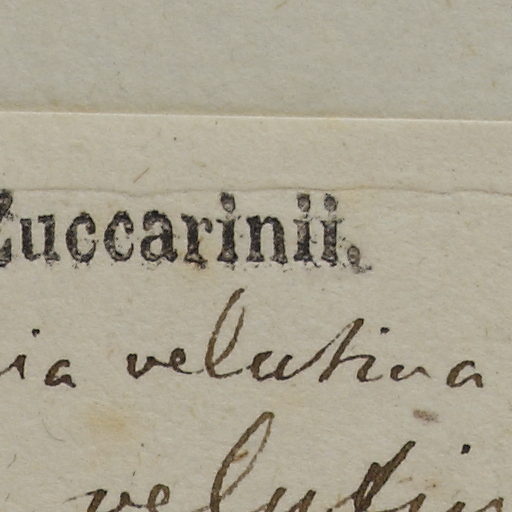 Zuccarinii.
ia velutina
velutin